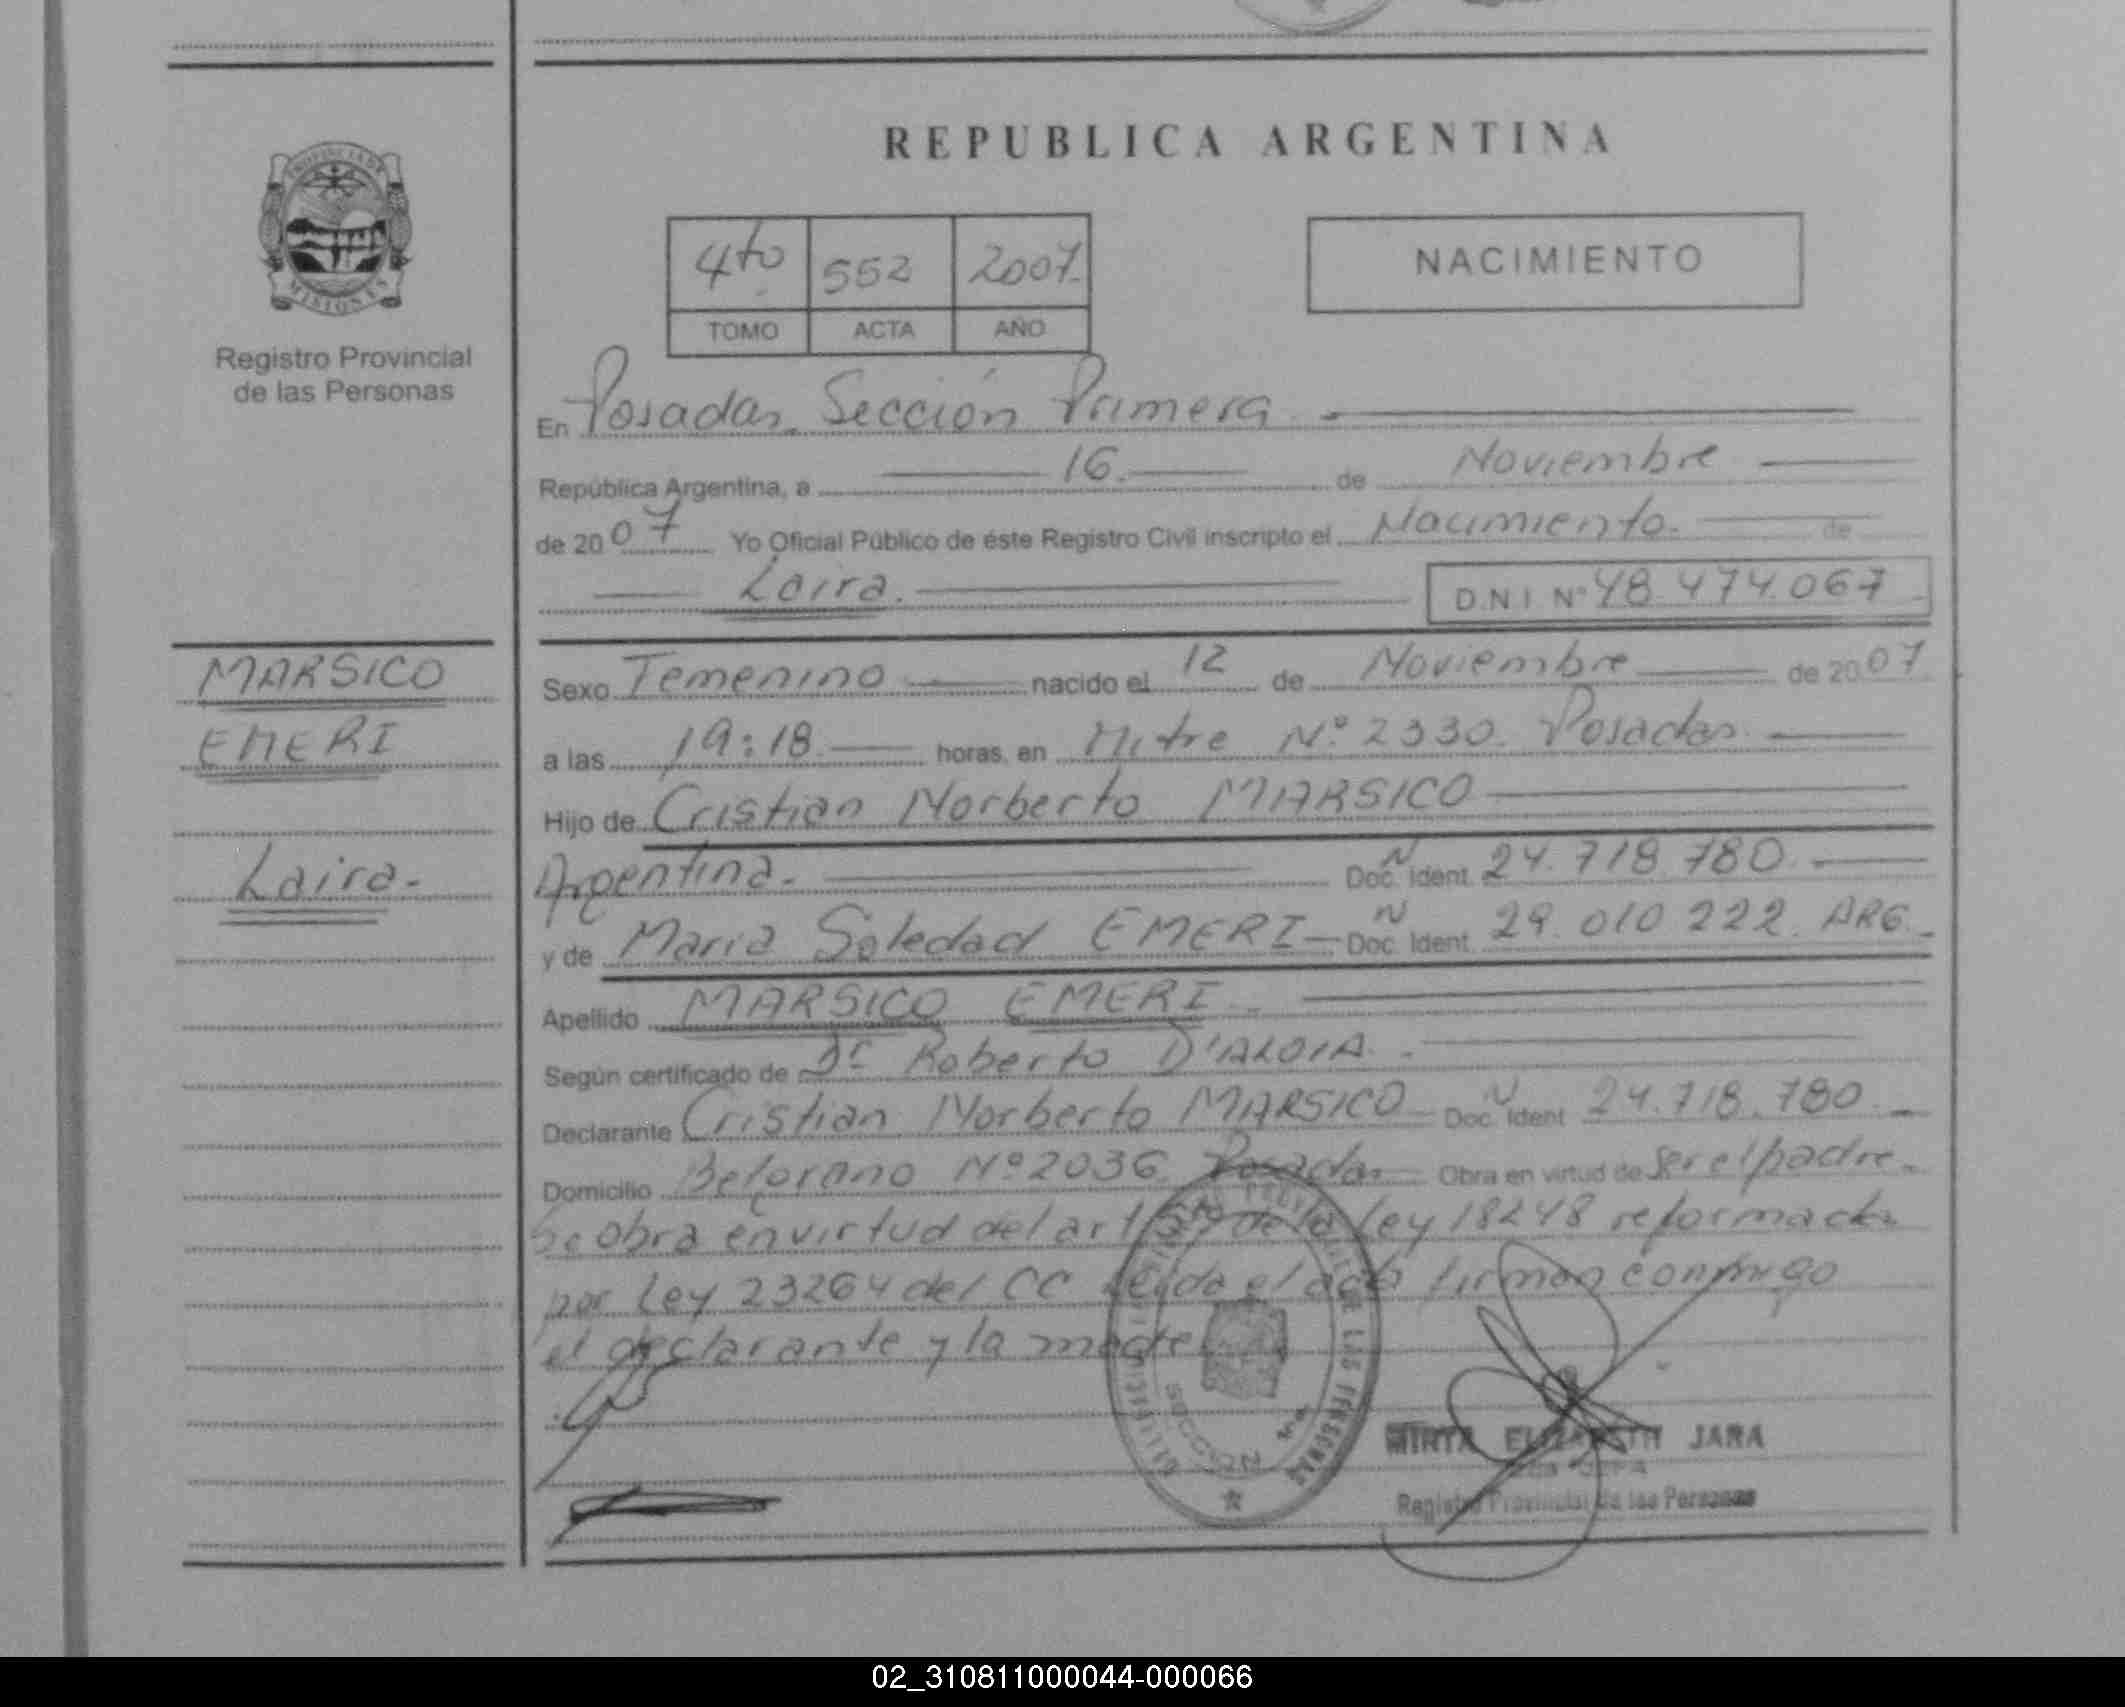 PROVINCIA DE
MISIONES
Registro Provincial
de las Personas
MARSICO
EMERI
Laira.-
REPUBLICA ARGENTINA
4to 552 2007.
TOMO ACTA AÑO
NACIMIENTO
En Posadas Sección Primera
República Argentina, a 16 de Noviembre
de 2007 Yo Oficial Público de éste Registro Civil inscripto el Nacimiento. de
Laira. D.N.I Nº 48.474.067
Sexo Femenino nacido el 12 de Noviembre de 2007
a las 19:18 horas, en Mitre Nº 2330. Posadas
Hijo de Cristian Norberto MARSICO
Argentina.- Doc. Ident. N 24.718.780.
y de Maria Soledad EMERI Doc. Ident. N 29.010.222. ARG.
Apellido MARSICO EMERI.
Según certificado de Dr Roberto D'ALOIA.
Declarante Cristian Norberto MARSICO Doc. Ident N 24.718.780.
Domicilio Belgrano Nº 2036 Posadas Obra en virtud de ser el padre.
Se obra en virtud del art de la Ley 18248 reformada
por Ley 23264 del CC Leida el acta firman conmigo
el declarante y la madre
REGISTRO PROVINCIAL DE LAS PERSONAS
SECCION 1ra
MIRTA ELIZABETH JARA
Registro Provincial de las Personas
02_310811000044-000066